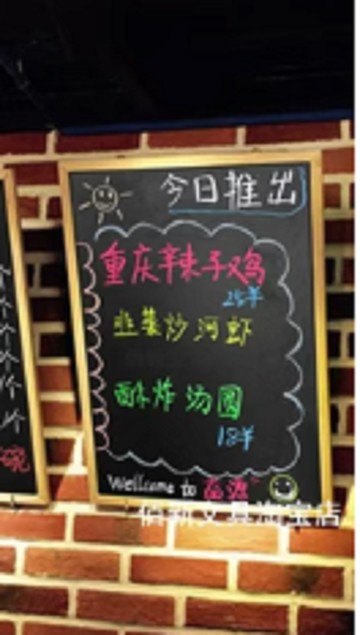 今日推出
重庆辣子鸡
25半
韭菜炒河虾
酥炸汤圆
18半
Wellcome to
文具淘宝店